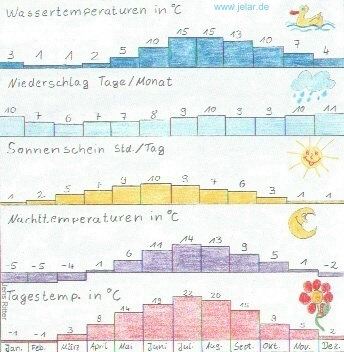 Wassertemperaturen in °C
www.jelar.de
3 1 1 2 5 10 15 15 13 10 7 4
Niederschlag Tage/Monat
10 7 6 7 7 8 9 10 9 9 10 11
Sonnenschein Std/Tag
1 2 5 7 9 10 9 7 6 3 1 1
Nachttemperaturen in °C
-5 -5 -4 1 6 11 14 13 9 5 1 -2
Tagestemp. in °C
-1 -1 3 8 14 19 22 20 15 9 5 2
Jan. Feb. März April Mai Juni Juli Aug. Sept. Okt. Nov. Dez.
Jens Ritter